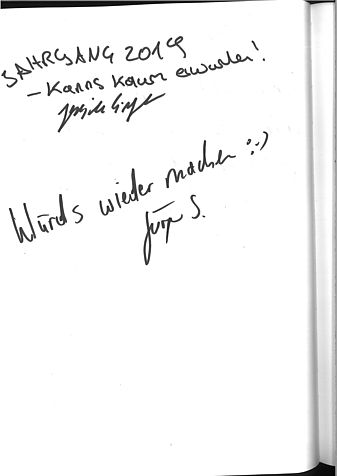 JAHRGANG 2019
- Kanns kaum erwarten!
Würds wieder machen :-)
Jürgen S.